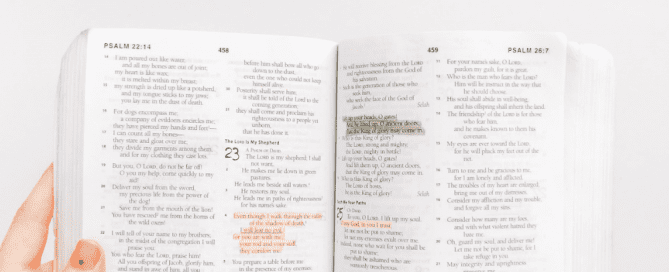 PSALM 22:14
458
14 I am poured out like water,
and all my bones are out of joint;
my heart is like wax;
it is melted within my breast;
15 my strength is dried up like a potsherd,
and my tongue sticks to my jaws;
you lay me in the dust of death.
16 For dogs encompass me;
a company of evildoers encircles me;
they have pierced my hands and feet
17 I can count all my bones—
they stare and gloat over me;
18 they divide my garments among them,
and for my clothing they cast lots.
19 But you, O LORD, do not be far off!
O you my help, come quickly to my
aid!
20 Deliver my soul from the sword,
my precious life from the power of
the dog!
21 Save me from the mouth of the lion!
You have rescued me from the horns of
the wild oxen!
22 I will tell of your name to my brothers;
in the midst of the congregation I will
praise you:
23 You who fear the LORD, praise him!
All you offspring of Jacob, glorify him,
and stand in awe of him, all you
before him shall bow all who go
down to the dust,
even the one who could not keep
himself alive.
30 Posterity shall serve him;
it shall be told of the Lord to the
coming generation;
31 they shall come and proclaim his
righteousness to a people yet
unborn,
that he has done it.
The LORD Is My Shepherd
A PSALM OF DAVID.
23 The LORD is my shepherd; I shall
not want.
2 He makes me lie down in green
pastures.
He leads me beside still waters.
3 He restores my soul.
He leads me in paths of righteousness
for his name's sake.
4 Even though I walk through the valley
of the shadow of death,
I will fear no evil,
for you are with me;
your rod and your staff,
they comfort me.
5 You prepare a table before me
in the presence of my enemies;
459
PSALM 26:7
he will receive blessing from the LORD
and righteousness from the God of
his salvation.
Such is the generation of those who
seek him,
who seek the face of the God of
Jacob.
Selah
Lift up your heads, O gates!
And be lifted up, O ancient doors,
that the King of glory may come in.
Who is this King of glory?
The LORD, strong and mighty,
the LORD, mighty in battle!
Lift up your heads, O gates!
And lift them up, O ancient doors,
that the King of glory may come in.
Who is this King of glory?
The LORD of hosts,
he is the King of glory!
Selah
25 To you, O LORD, I lift up my soul.
O my God, in you I trust;
let me not be put to shame;
let not my enemies exult over me.
Indeed, none who wait for you shall be
put to shame;
they shall be ashamed who are
wantonly treacherous.
11 For your name's sake, O LORD,
pardon my guilt, for it is great.
12 Who is the man who fears the LORD?
Him will he instruct in the way that
he should choose.
13 His soul shall abide in well-being,
and his offspring shall inherit the land.
14 The friendship of the LORD is for those
who fear him,
and he makes known to them his
covenant.
15 My eyes are ever toward the LORD,
for he will pluck my feet out of the
net.
16 Turn to me and be gracious to me,
for I am lonely and afflicted.
17 The troubles of my heart are enlarged;
bring me out of my distresses.
18 Consider my affliction and my trouble,
and forgive all my sins.
19 Consider how many are my foes,
and with what violent hatred they
hate me.
20 Oh, guard my soul, and deliver me!
Let me not be put to shame, for I
take refuge in you.
21 May integrity and uprightness